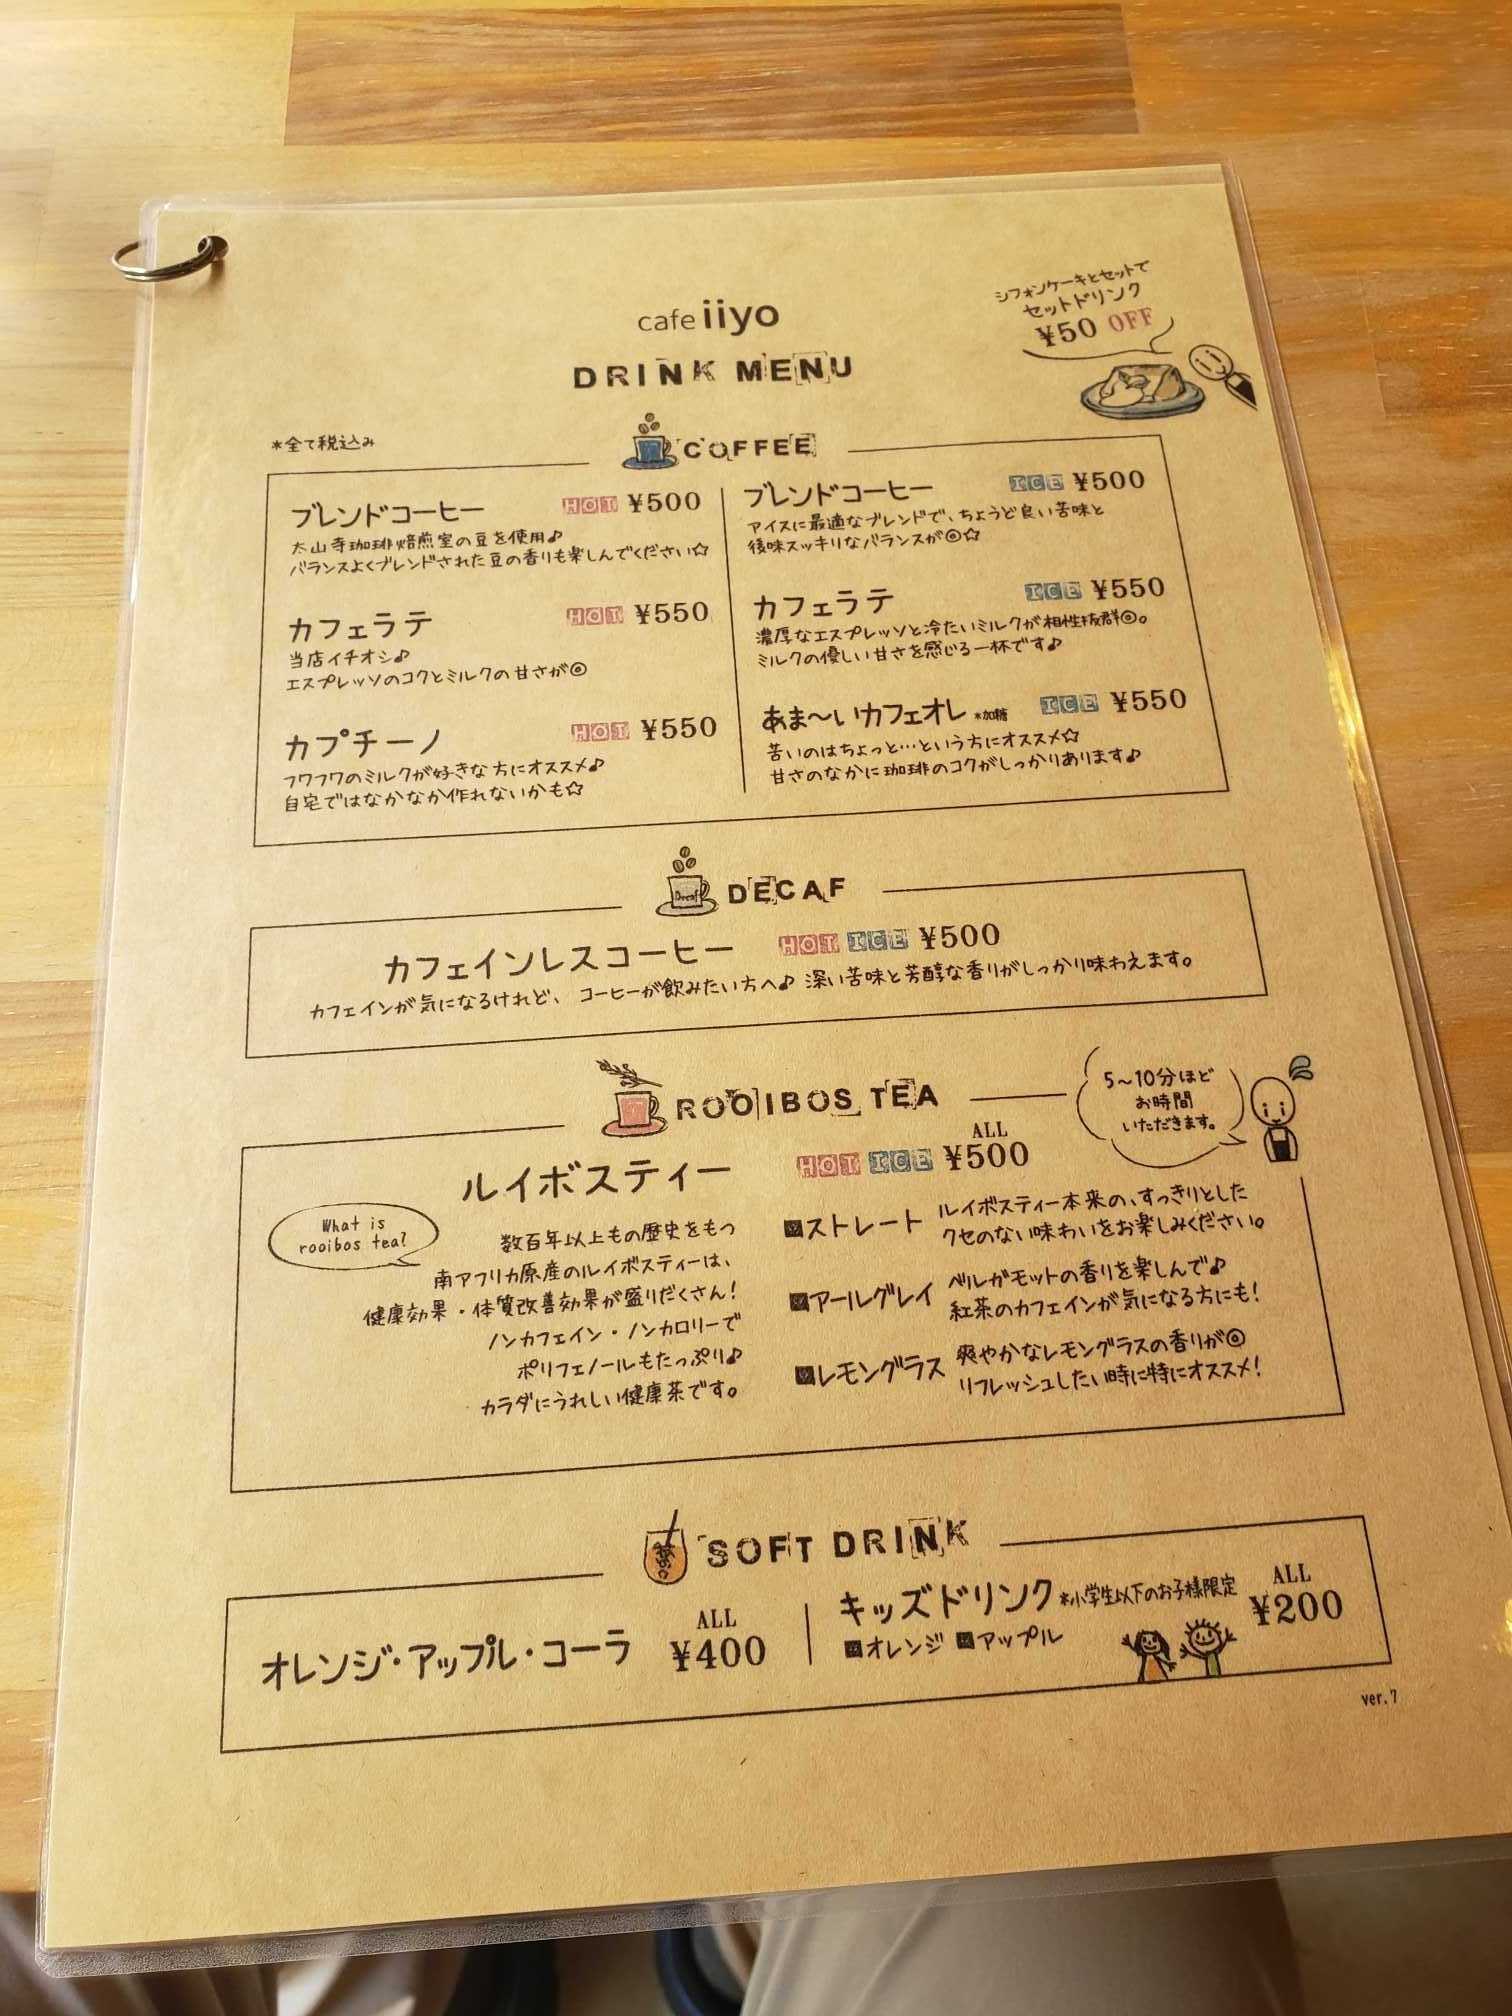 シフォンケーキとセットで
セットドリンク
¥50 OFF
cafe iiyo
DRINK MENU
*全て税込み
COFFEE
ブレンドコーヒー HOT ¥500
大山寺珈琲焙煎室の豆を使用♪
バランスよくブレンドされた豆の香りも楽しんでください☆
カフェラテ HOT ¥550
当店イチオシ♪
エスプレッソのコクとミルクの甘さが◎
カプチーノ HOT ¥550
フワフワのミルクが好きな方にオススメ♪
自宅ではなかなか作れないかも☆
ブレンドコーヒー ICE ¥500
アイスに最適なブレンドで、ちょうど良い苦味と
後味スッキリなバランスが◎☆
カフェラテ ICE ¥550
濃厚なエスプレッソと冷たいミルクが相性抜群◎。
ミルクの優しい甘さを感じる一杯です♪
あま〜いカフェオレ *加糖 ICE ¥550
苦いのはちょっと…という方にオススメ☆
甘さのなかに珈琲のコクがしっかりあります♪
Decaf
DECAF
カフェインレスコーヒー HOT ICE ¥500
カフェインが気になるけれど、コーヒーが飲みたい方へ♪ 深い苦味と芳醇な香りがしっかり味わえます。
ROOIBOS TEA
5〜10分ほど
お時間
いただきます。
ルイボスティー HOT ICE ALL ¥500
What is
rooibos tea?
数百年以上もの歴史をもつ
南アフリカ原産のルイボスティーは、
健康効果・体質改善効果が盛りだくさん!
ノンカフェイン・ノンカロリーで
ポリフェノールもたっぷり♪
カラダにうれしい健康茶です。
■ストレート ルイボスティー本来の、すっきりとした
クセのない味わいをお楽しみください。
■アールグレイ ベルガモットの香りを楽しんで♪
紅茶のカフェインが気になる方にも!
■レモングラス 爽やかなレモングラスの香りが◎
リフレッシュしたい時に特にオススメ!
SOFT DRINK
オレンジ・アップル・コーラ ALL ¥400
キッズドリンク *小学生以下のお子様限定 ALL ¥200
■オレンジ ■アップル
ver.7